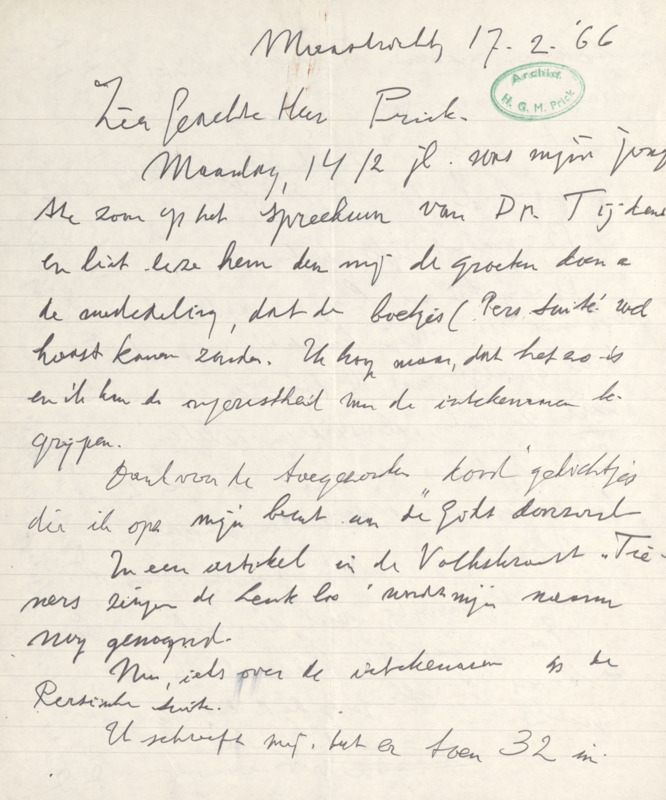 Maastricht, 17-2-'66
Archief
H. G. M. Prick
Zeer Geachte Heer Prick.
Maandag, 14/2 jl. was mijn jong
ste zoon op het spreekuur van Dr. Tij-dens
en liet deze hem den mij de groeten doen
de mededeling, dat de boekjes (Pers. Suite' wel
haast komen zouden. Ik hoop maar, dat het zo is
en ik kan de ongerustheid van de intekenaren be-
grijpen.
Dank voor de toegezonden gedichtjes
die ik op mijn beurt aan de
In een artikel in de Volkskrant „Tie-
ners zingen de " wordt mijn naam
nog genoemd.
Nu, iets over de intekenaren de
Perzische Suite.
U schreeft mij, dat er toen 32 in-